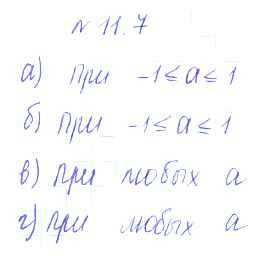 № 11.7
а) при -1 ≤ а ≤ 1
б) при -1 ≤ а ≤ 1
в) при любых а
г) при любых а